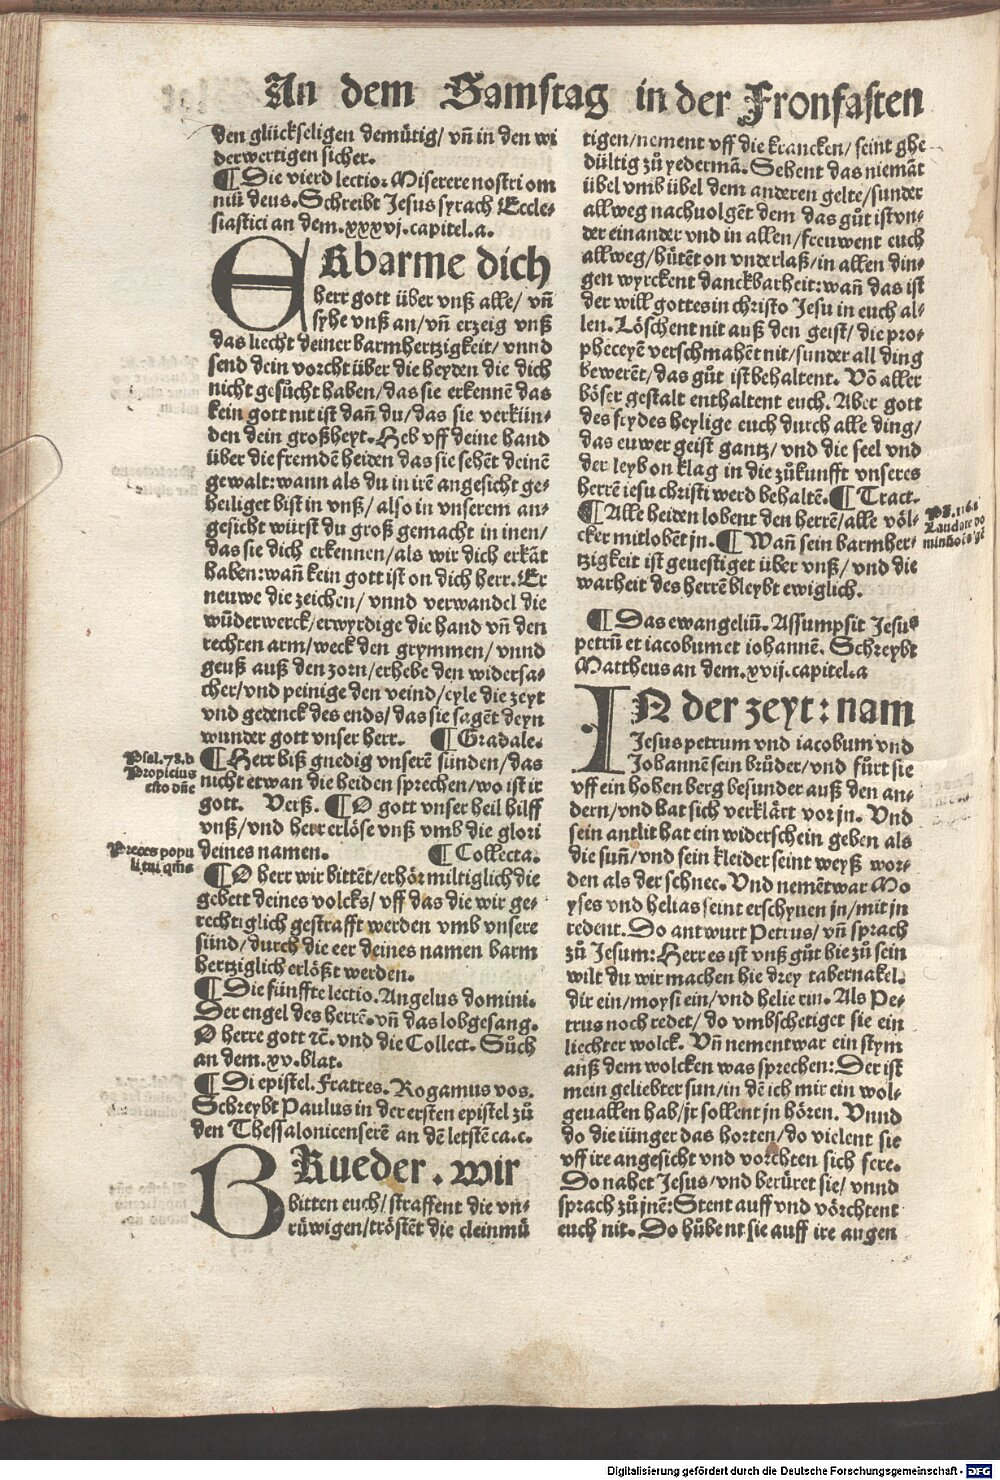 An dem Samstag in der Fronfasten
den glückseligen demütig/ vñ in den wi
derwertigen sicher.
¶ Die vierd lectio. Miserere nostri om
niū deus. Schreibt Jesus syrach Eccle-
siastici an dem .xxxvj. capitel.a.
ERbarme dich
herr gott über vnß alle/ vñ
syhe vnß an/ vñ erzeig vnß
das liecht deiner barmhertzigkeit/ vnnd
send dein vorcht über die heyden die dich
nicht gesůcht haben/ das sie erkennē das
kein gott nit ist dañ du/ das sie verkün-
den dein großheyt. Heb vff deine hand
über die fremdē heiden das sie sehēt deinē
gewalt: wann als du in irē angesicht ge-
heiliget bist in vnß/ also in vnserem an-
gesicht würst du groß gemacht in inen/
das sie dich erkennen/ als wir dich erkāt
haben: wañ kein gott ist on dich herr. Er
neuwe die zeichen/ vnnd verwandel die
wūderwerck/ erwyrdige die hand vñ den
rechten arm/ weck den grymmen/ vnnd
geuß auß den zorn/ erhebe den widersa-
cher/ vnd peinige den veind/ eyle die zeyt
vnd gedenck des ends/ das sie sagēt deyn
wunder gott vnser herr. ¶ Gradale.
Psal.78.b
Propicius
esto dñe
¶ Herr biß gnedig vnserē sünden/ das
nicht etwan die heiden sprechen/ wo ist ir
gott. Verß. ¶ O gott vnser heil hilff
vnß/ vnd herr erlöse vnß vmb die glori
deines namen. ¶ Collecta.
Preces popu
li tui qm̄s
¶ O herr wir bittēt/ erhör miltiglich die
gebett deines volcks/ vff das die wir ge-
rechtiglich gestrafft werden vmb vnsere
sünd/ durch die eer deines namen barm
hertziglich erlößt werden.
¶ Die fünffte lectio. Angelus domini.
Der engel des herrē. vñ das lobgesang.
O herre gott ꝛc̄. vnd die Collect. Sůch
an dem .xv. blat.
¶ Di epistel. Fratres. Rogamus vos.
Schreybt Paulus in der ersten epistel zů
den Thessalonicenserē an dē letstē ca.c.
BRueder. wir
bitten euch/ straffent die vn-
rüwigen/ tröstēt die cleinmü
tigen/ nement vff die krancken/ seint ghe
dültig zů yedermā. Sehent das niemāt
übel vmb übel dem anderen gelte/ sunder
allweg nachuolgēt dem das gůt ist vn-
der einander vnd in allen/ freuwent euch
allweg/ hütēt on vnderlaß/ in allen din-
gen wyrckent danckbarheit: wañ das ist
der will gottes in christo Jesu in euch al-
len. Löschent nit auß den geist/ die pro-
pheceyē verschmahēt nit/ sunder all ding
bewerēt/ das gůt ist behaltent. Vō aller
böser gestalt enthaltent euch. Aber gott
des frydes heylige euch durch alle ding/
das euwer geist gantz/ vnd die seel vnd
der leyb on klag in die zůkunfft vnseres
herrē iesu christi werd behaltē. ¶ Tract.
Ps.116.
Laudate do
min̄ oēs gē
¶ Alle heiden lobent den herrē/ alle völ-
cker mitlobēt jn. ¶ Wañ sein barmher-
tzigkeit ist geuestiget über vnß/ vnd die
warheit des herrē bleybt ewiglich.
¶ Das ewangeliū. Assumpsit Jesus
petrū et iacobum et iohannē. Schreybt
Mattheus an dem .xvij. capitel.a
IN der zeyt: nam
Jesus petrum vnd iacobum vnd
Johannē sein brůder/ vnd fürt sie
vff ein hohen berg besunder auß den an-
dern/ vnd hat sich verklärt vor jn. Vnd
sein antlit hat ein widerschein geben als
die suñ/ vnd sein kleider seint weyß wor-
den als der schnee. Vnd nemēt war Mo
yses vnd helias seint erschynen jn/ mit jn
redent. Do antwurt Petrus/ vñ sprach
zů Jesum: Herr es ist vnß gůt hie zů sein
wilt du wir machen hie drey tabernakel.
dir ein/ moysi ein/ vnd helie ein. Als Pe-
trus noch redet/ do vmbschetiget sie ein
liechter wolck. Vñ nement war ein stym
auß dem wolcken was sprechen: Der ist
mein geliebter sun/ in dē ich mir ein wol-
geuallen hab/ jr sollent jn hören. Vnnd
do die jünger das horten/ do vielent sie
vff ire angesicht vnd vorchten sich sere.
Do nahet Jesus/ vnd berüret sie/ vnnd
sprach zů jnē: Stent auff vnd vörchtent
euch nit. Do hůbent sie auff ire augen
Digitalisierung gefördert durch die Deutsche Forschungsgemeinschaft - DFG